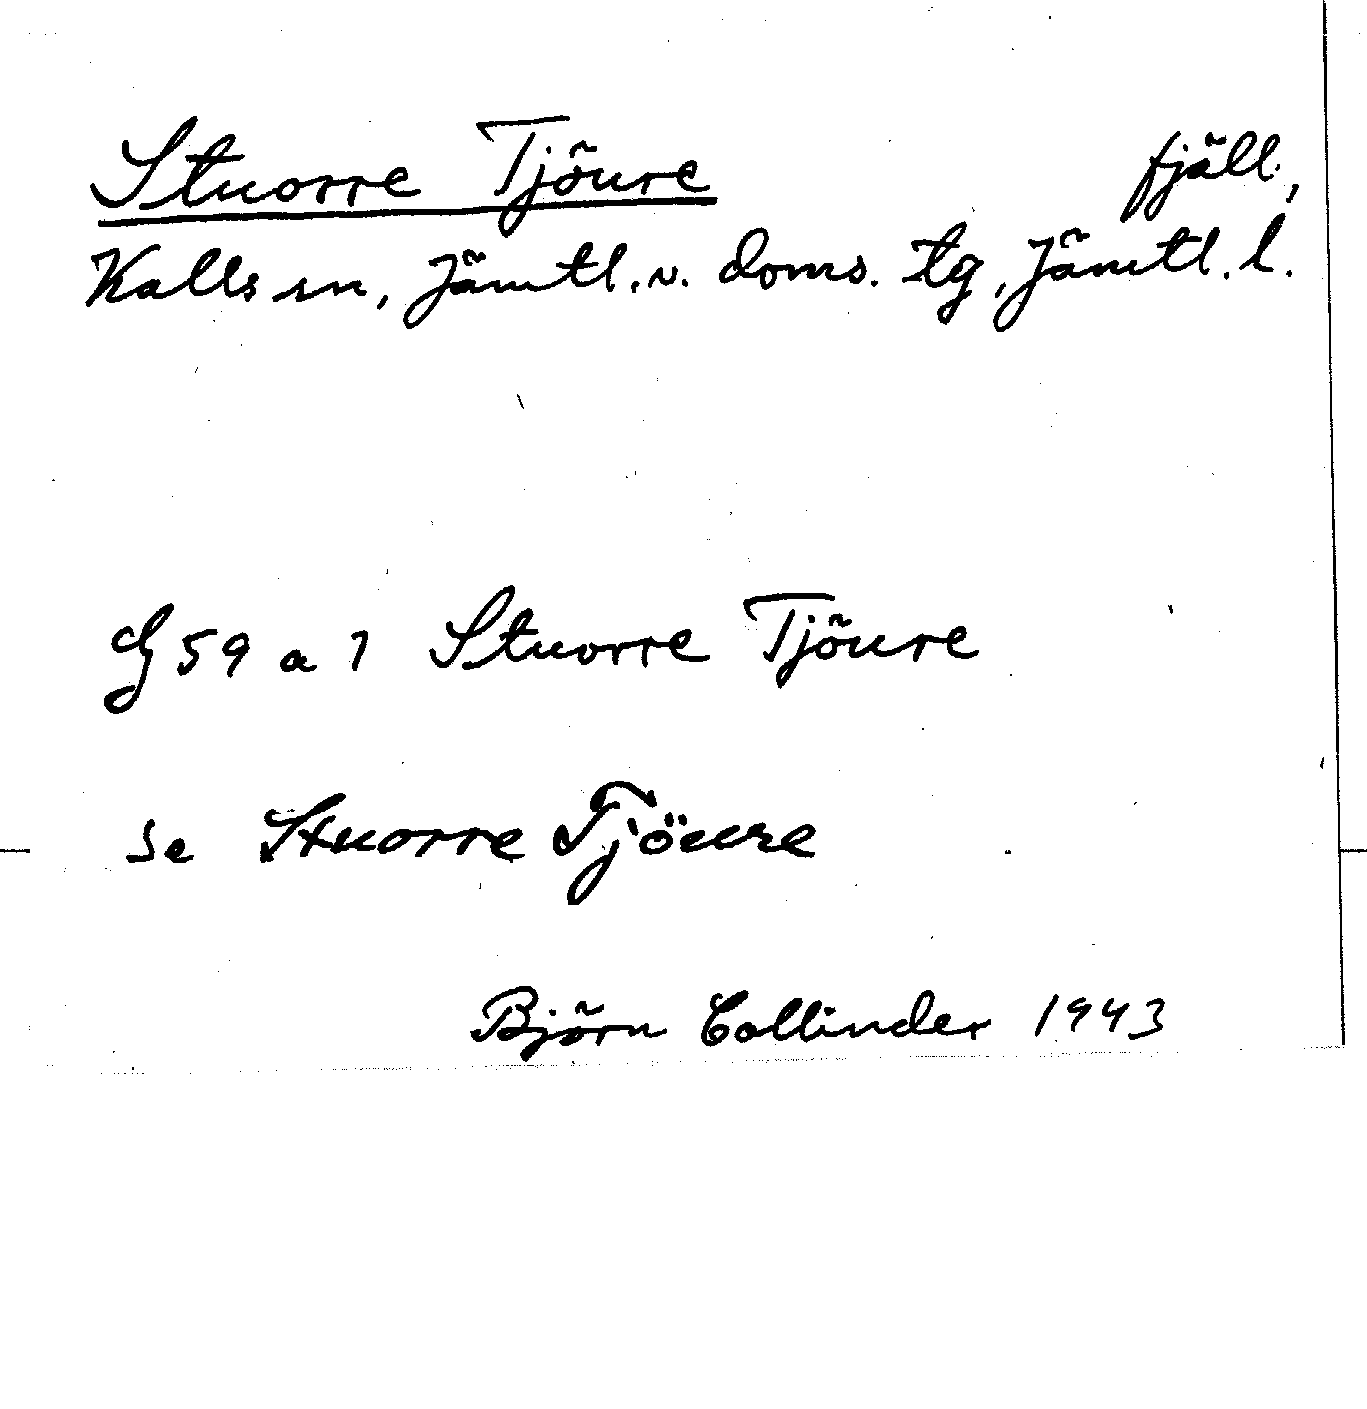 Stuorre Tjõure fjäll,
Kalls sn, Jämtl. v. doms. tg, Jämtl. l.
G 59 a 1 Stuorre Tjõure
se Stuorre Tjöure
Björn Collinder 1943